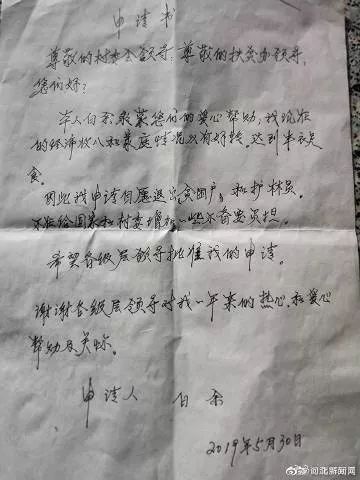 申请书
尊敬的村委会领导：尊敬的扶贫办领导，
您们好？
本人白余承蒙您们的爱心帮助，我现在
的经济收入和家庭情况大有好转。达到丰衣足
食。
因此我申请自愿退出贫困户，和护林员。
不在给国家和村委增加一些不必要负担。
希望各级层领导批准我的申请。
谢谢各级层领导对我一年来的热心、和爱心
帮助及关怀。
申请人 白余
2019年5月30日
@河北新闻网